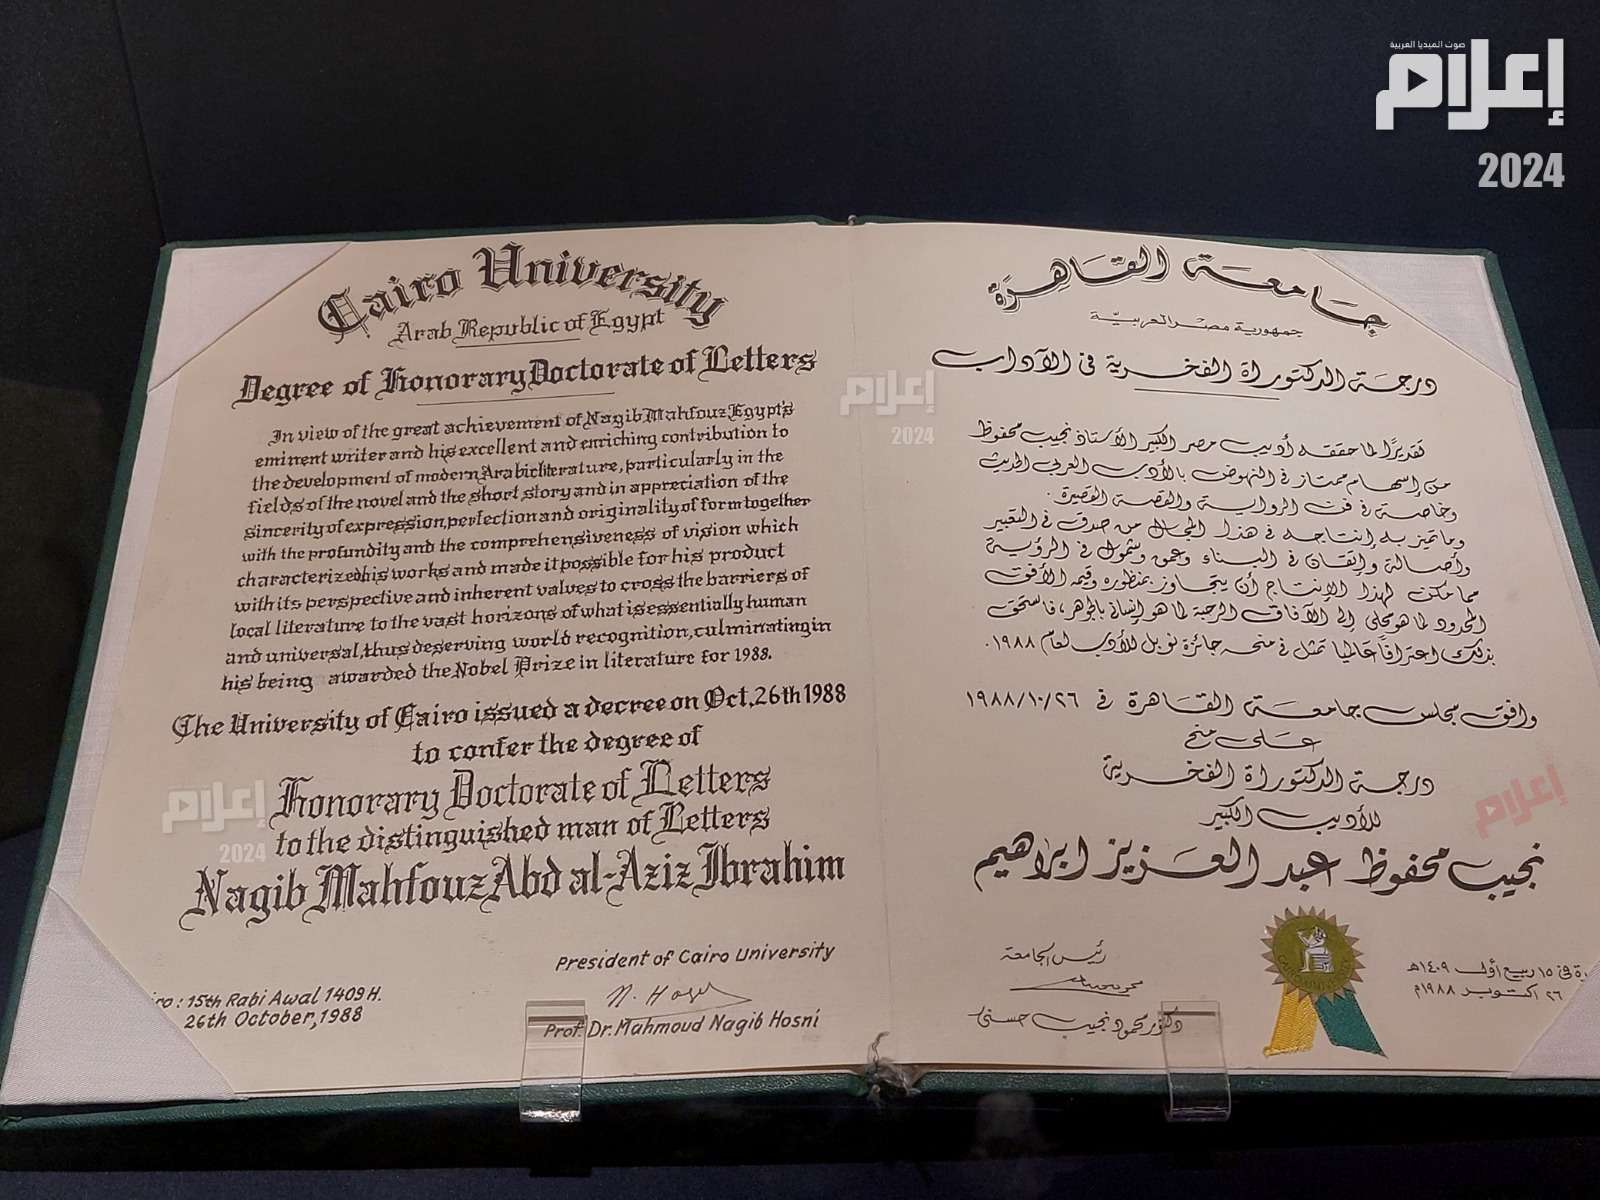 صوت الميديا العربية
إعلام
2024
Cairo University
Arab Republic of Egypt
Degree of Honorary Doctorate of Letters
In view of the great achievement of Nagib Mahfouz Egypt's
eminent writer and his excellent and enriching contribution to
the development of modern Arabic literature, particularly in the
fields of the novel and the short story and in appreciation of the
sincerity of expression, perfection and originality of form together
with the profundity and the comprehensiveness of vision which
characterized his works and made it possible for his product
with its perspective and inherent valves to cross the barriers of
local literature to the vast horizons of what is essentially human
and universal, thus deserving world recognition, culminating in
his being awarded the Nobel Prize in literature for 1988.
The University of Cairo issued a decree on Oct. 26th 1988
to confer the degree of
Honorary Doctorate of Letters
to the distinguished man of Letters
Nagib Mahfouz Abd al-Aziz Ibrahim
President of Cairo University
N. Hosni
Prof. Dr. Mahmoud Nagib Hosni
iro : 15th Rabi Awal 1409 H.
26th October, 1988
جامعة القاهرة
جمهورية مصر العربية
درجة الدكتوراة الفخرية في الآداب
تقديرًا لما حققه أديب مصر الكبير الأستاذ نجيب محفوظ
من إسهام ممتاز في النهوض بالأدب العربي الحديث
وخاصة في فن الرواية والقصة القصيرة .
وما تميز به إنتاجه في هذا المجال من صدق في التعبير
وأصالة وإتقان في البناء وعمق وشمول في الرؤية
مما مكن لهذا الإنتاج أن يتجاوز بمنظوره وقيمه الأفق
المحدود لما هو محلي إلى الآفاق الرحبة لما هو إنساني بالجوهر، فاستحق
بذلك اعترافاً عالميا تمثل في منحه جائزة نوبل للأدب لعام ١٩٨٨.
وافق مجلس جامعة القاهرة في ١٩٨٨/١٠/٢٦
على منح
درجة الدكتوراة الفخرية
للأديب الكبير
نجيب محفوظ عبد العزيز ابراهيم
رئيس الجامعة
دكتور محمود نجيب حسني
رة في ١٥ ربيع أول ١٤٠٩هـ
٢٦ اكتوبر ١٩٨٨م
إعلام
2024
إعلام
2024
إعلام